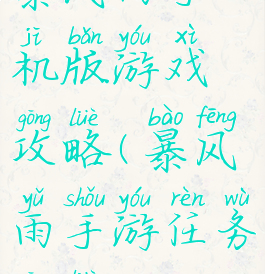 jī bǎn yóu xì
机版游戏
gōng lüè bào fēng
攻略(暴风
yǔ shǒu yóu rèn wù
雨手游任务